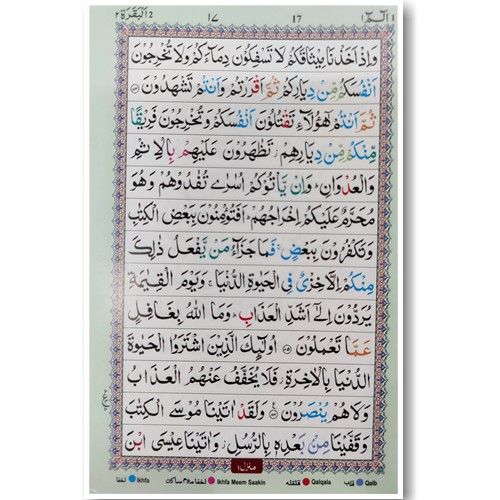 البقرة ٢ ١٧ 17 الٓمّٓ ١
وَاِذْ اَخَذْنَا مِيْثَاقَكُمْ لَا تَسْفِكُوْنَ دِمَآءَكُمْ وَلَا تُخْرِجُوْنَ
اَنْفُسَكُمْ مِّنْ دِيَارِكُمْ ثُمَّ اَقْرَرْتُمْ وَاَنْتُمْ تَشْهَدُوْنَ
ثُمَّ اَنْتُمْ هٰٓؤُلَآءِ تَقْتُلُوْنَ اَنْفُسَكُمْ وَتُخْرِجُوْنَ فَرِيْقًا
مِّنْكُمْ مِّنْ دِيَارِهِمْ تَظٰهَرُوْنَ عَلَيْهِمْ بِالْاِثْمِ
وَالْعُدْوَانِ وَاِنْ يَّاْتُوْكُمْ اُسٰرٰى تُفٰدُوْهُمْ وَهُوَ
مُحَرَّمٌ عَلَيْكُمْ اِخْرَاجُهُمْ اَفَتُؤْمِنُوْنَ بِبَعْضِ الْكِتٰبِ
وَتَكْفُرُوْنَ بِبَعْضٍ فَمَا جَزَآءُ مَنْ يَّفْعَلُ ذٰلِكَ
مِنْكُمْ اِلَّا خِزْىٌ فِى الْحَيٰوةِ الدُّنْيَا وَيَوْمَ الْقِيٰمَةِ
يُرَدُّوْنَ اِلٰٓى اَشَدِّ الْعَذَابِ وَمَا اللّٰهُ بِغَافِلٍ
عَمَّا تَعْمَلُوْنَ اُولٰٓئِكَ الَّذِيْنَ اشْتَرَوُا الْحَيٰوةَ
الدُّنْيَا بِالْاٰخِرَةِ فَلَا يُخَفَّفُ عَنْهُمُ الْعَذَابُ
وَلَا هُمْ يُنْصَرُوْنَ وَلَقَدْ اٰتَيْنَا مُوْسَى الْكِتٰبَ
وَقَفَّيْنَا مِنْۢ بَعْدِهٖ بِالرُّسُلِ وَاٰتَيْنَا عِيْسَى ابْنَ
منزل ١
اخفا Ikhfa اخفا میم ساکن Ikhfa Meem Saakin قلقله Qalqala قلب Qalb